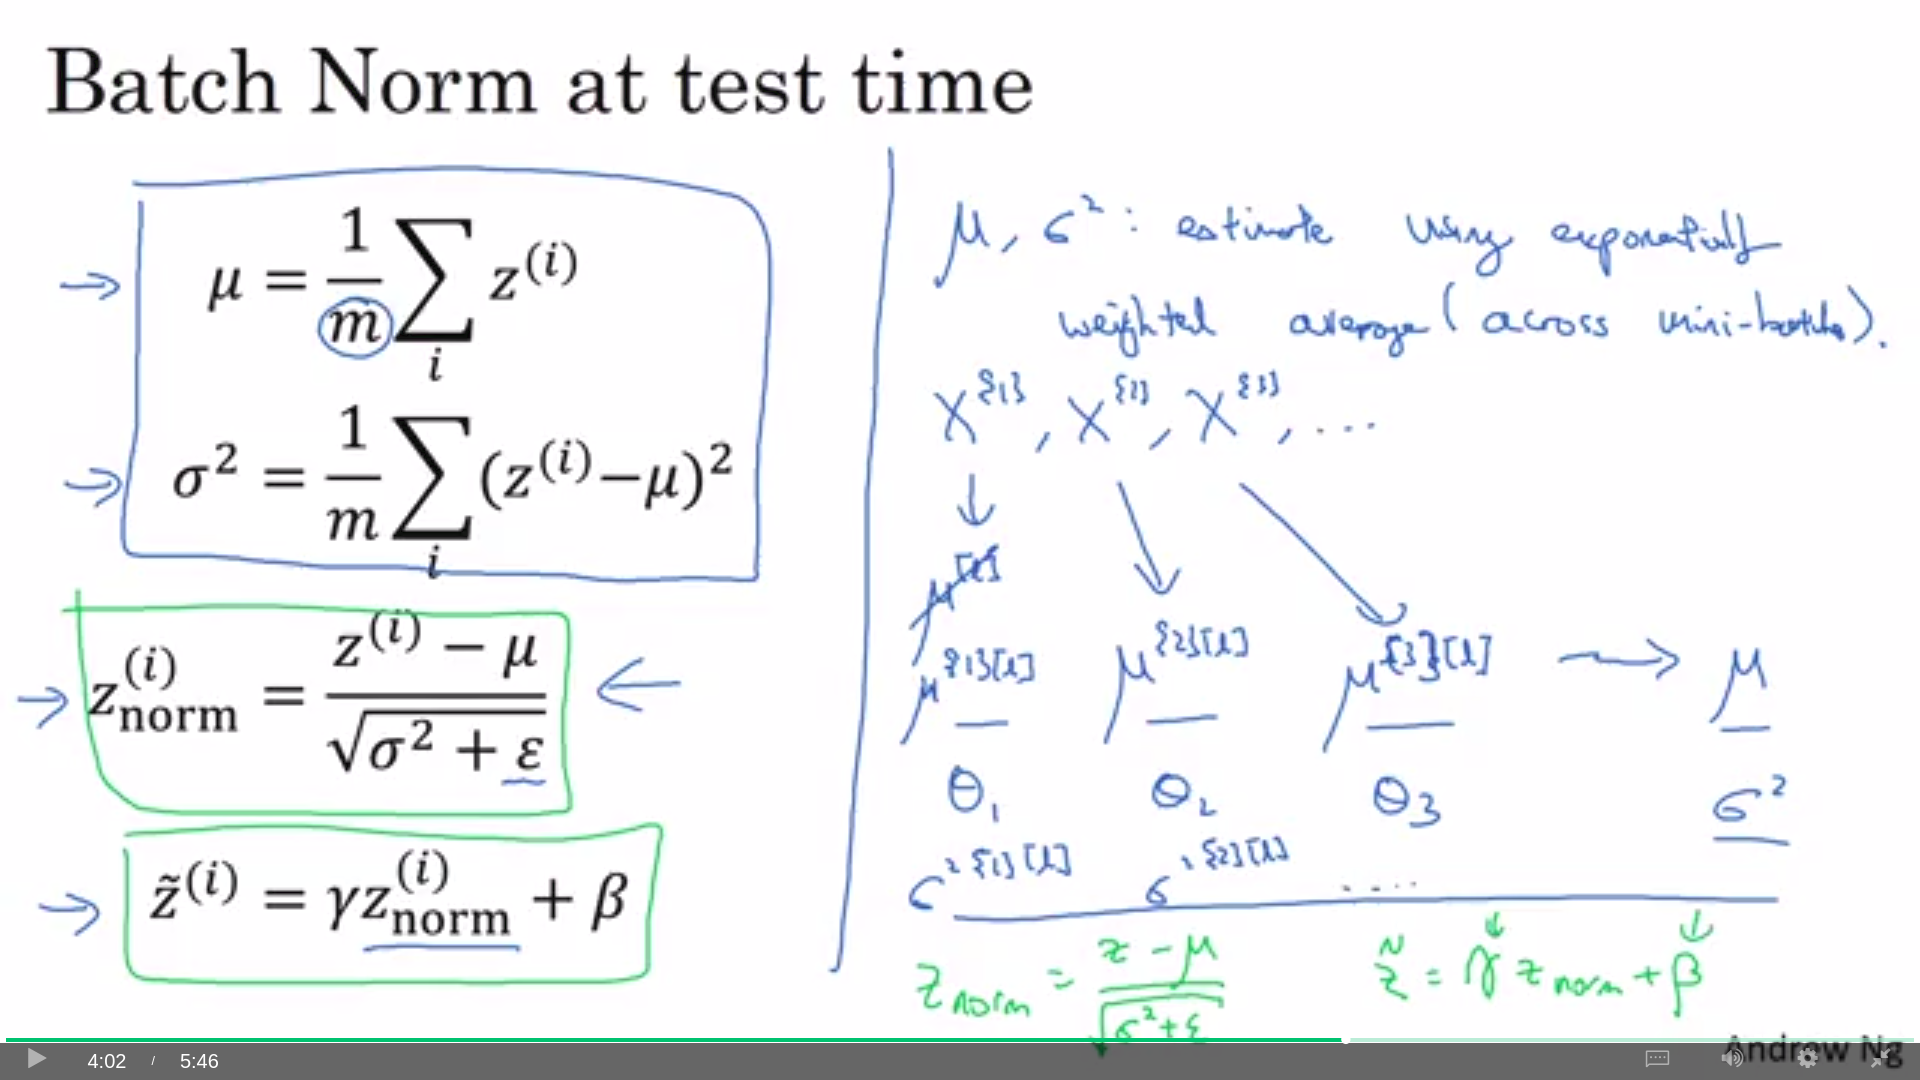 Batch Norm at test time
μ = 1/m ∑_i z^(i)
σ² = 1/m ∑_i (z^(i) − μ)²
z_norm^(i) = (z^(i) − μ) / √(σ² + ε)
z̃^(i) = γz_norm^(i) + β
μ, σ² : estimate using exponentially
weighted average (across mini-batches).
X^{1}, X^{2}, X^{3}, ...
μ^[l]
μ^{1}[l] μ^{2}[l] μ^{3}[l] → μ
θ₁ θ₂ θ₃ σ²
σ²^{1}[l] σ²^{2}[l] ....
z_norm = (z − μ) / √(σ² + ε) z̃ = γ z_norm + β
Andrew Ng
4:02 / 5:46